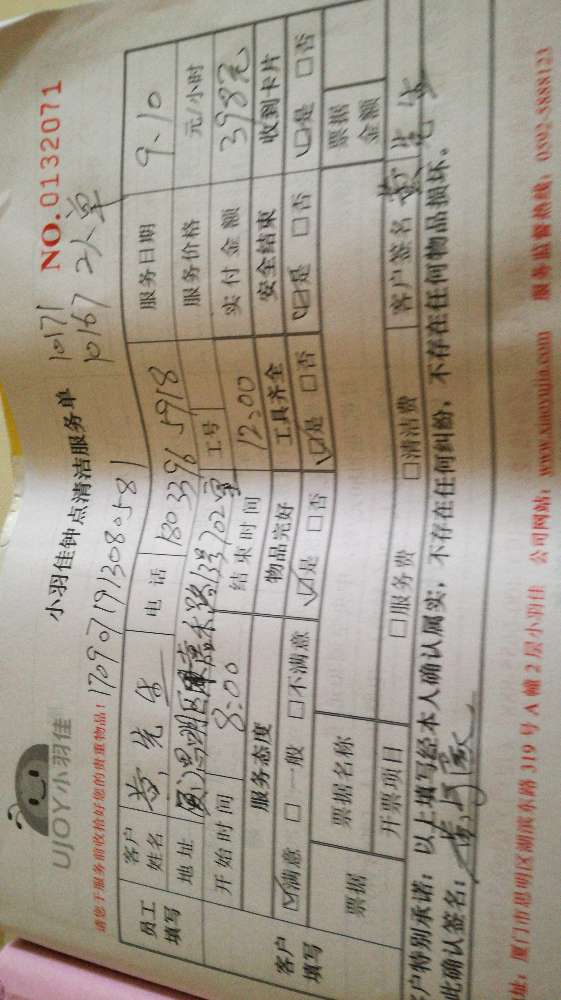 UJOY小羽佳
小羽佳钟点清洁服务单
NO.0132071
10171
10167 2人单
请您于服务前收拾好您的贵重物品!
170907191308058
员工填写
客户姓名 黄先生 电话 18033965918 服务日期 9.10
地址 702室 工号 服务价格 元/小时
开始时间 8:00 结束时间 12:00 实付金额 398元
客户填写
服务态度 物品完好 工具齐全 安全结束 收到卡片
☑满意 □一般 □不满意 ☑是 □否 ☑是 □否 ☑是 □否 ☑是 □否
票据 票据名称 票据金额
开票项目 □服务费 □清洁费 客户签名 黄先生
客户特别承诺:以上填写经本人确认属实,不存在任何纠纷,不存在任何物品损坏。
此确认签名:
址:厦门市思明区湖滨东路319号A幢2层小羽佳 公司网站:www.xiaoyujia.com 服务监督热线:0592-5888123